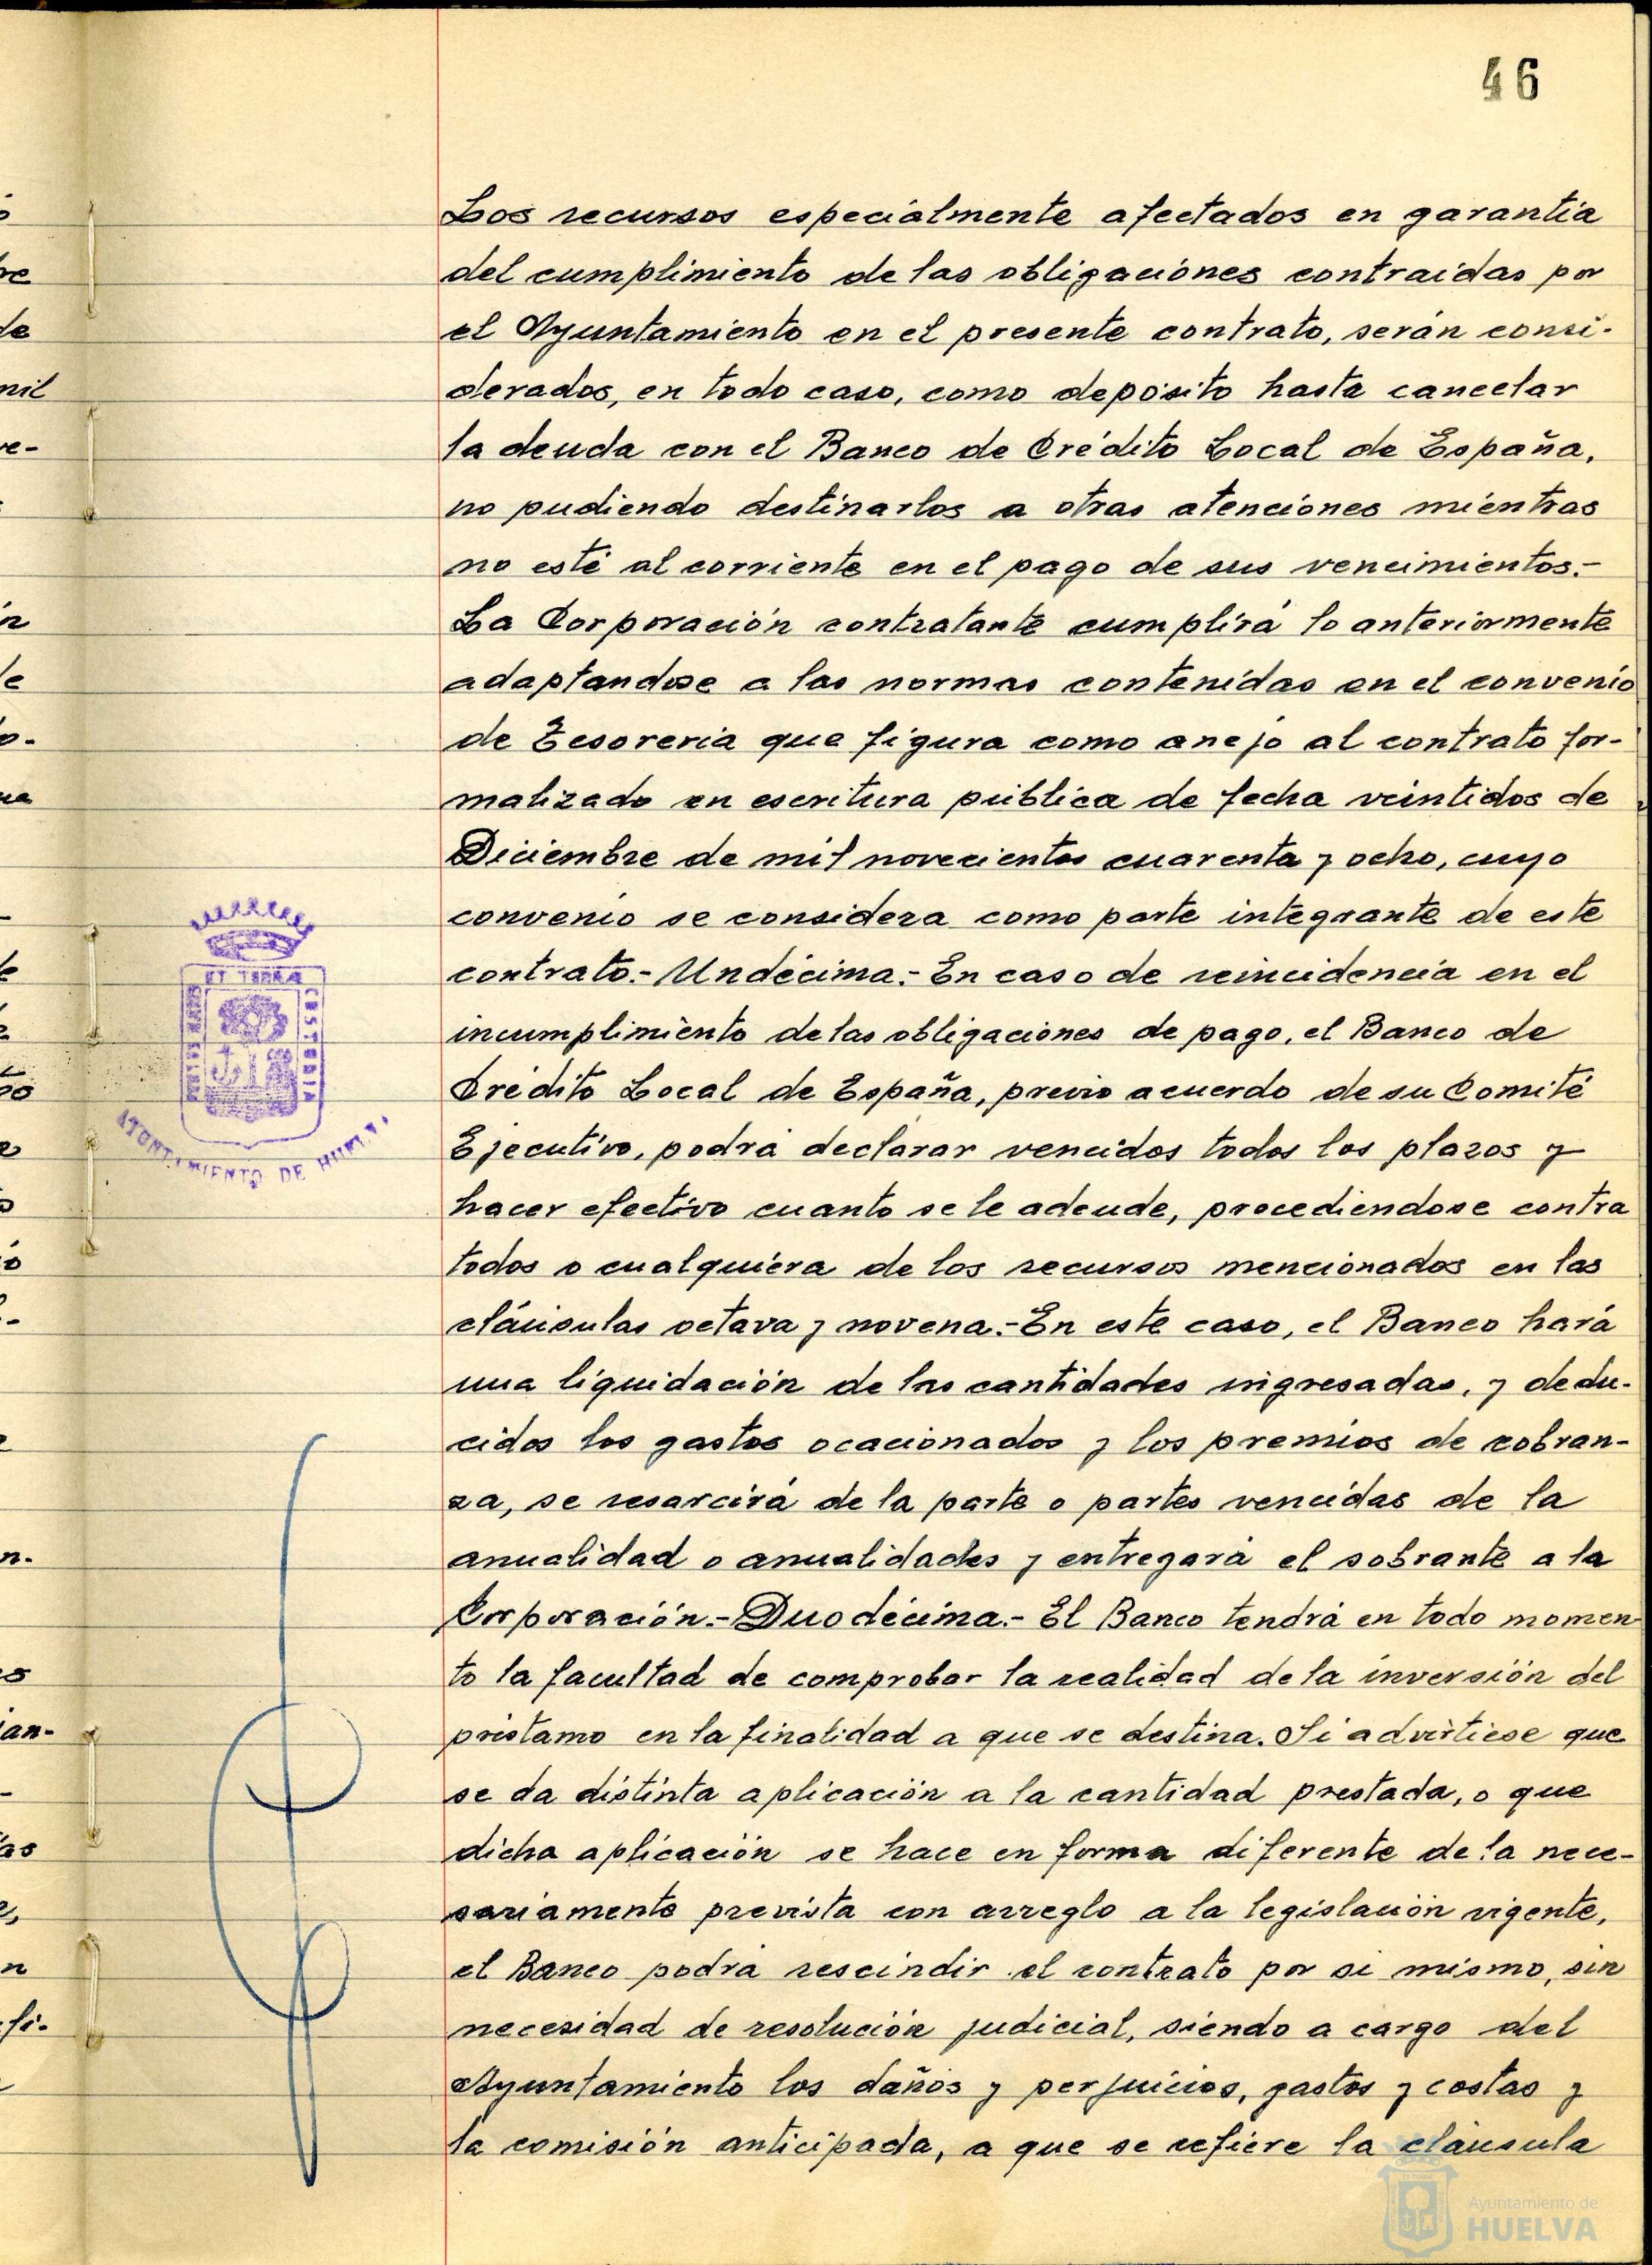 46
Los recursos especialmente afectados en garantía
del cumplimiento de las obligaciones contraidas por
el Ayuntamiento en el presente contrato, serán consi-
derados, en todo caso, como depósito hasta cancelar
la deuda con el Banco de Crédito Local de España,
no pudiendo destinarlos a otras atenciones mientras
no esté al corriente en el pago de sus vencimientos.-
La Corporación contratante cumplirá lo anteriormente
adaptandose a las normas contenidas en el convenio
de Tesoreria que figura como anejo al contrato for-
malizado en escritura pública de fecha veintidos de
Diciembre de mil novecientos cuarenta y ocho, cuyo
convenio se considera como parte integrante de este
contrato.- Undécima.- En caso de reincidencia en el
incumplimiento de las obligaciones de pago, el Banco de
Crédito Local de España, previo acuerdo de su Comité
Ejecutivo, podrá declarar vencidos todos los plazos y
hacer efectivo cuanto se le adeude, procediendose contra
todos o cualquiera de los recursos mencionados en las
cláusulas octava y novena.- En este caso, el Banco hará
una liquidación de las cantidades ingresadas, y dedu-
cidos los gastos ocacionados y los premios de cobran-
za, se resarcirá de la parte o partes vencidas de la
anualidad o anualidades y entregará el sobrante a la
Corporación.- Duodécima.- El Banco tendrá en todo momen
to la facultad de comprobar la realidad de la inversión del
préstamo en la finalidad a que se destina. Si advirtiese que
se da distinta aplicación a la cantidad prestada, o que
dicha aplicación se hace en forma diferente de la nece-
sariamente prevista con arreglo a la legislación vigente,
el Banco podrá rescindir el contrato por si mismo, sin
necesidad de resolución judicial, siendo a cargo del
Ayuntamiento los daños y perjuicios, gastos y costas y
la comisión anticipada, a que se refiere la cláusula
ET TERRÆ
PORTUS MARIS
CUSTODIA
AYUNTAMIENTO DE HUELVA
Ayuntamiento de
HUELVA